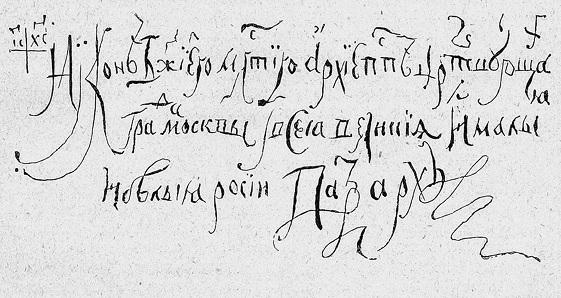 їс хс Нїконъ Бжїею мстїю архїеппъ цртвующаго
града москвы і всеꙗ великїя и малыꙗ
и бѣлыꙗ росїи Патрархъ